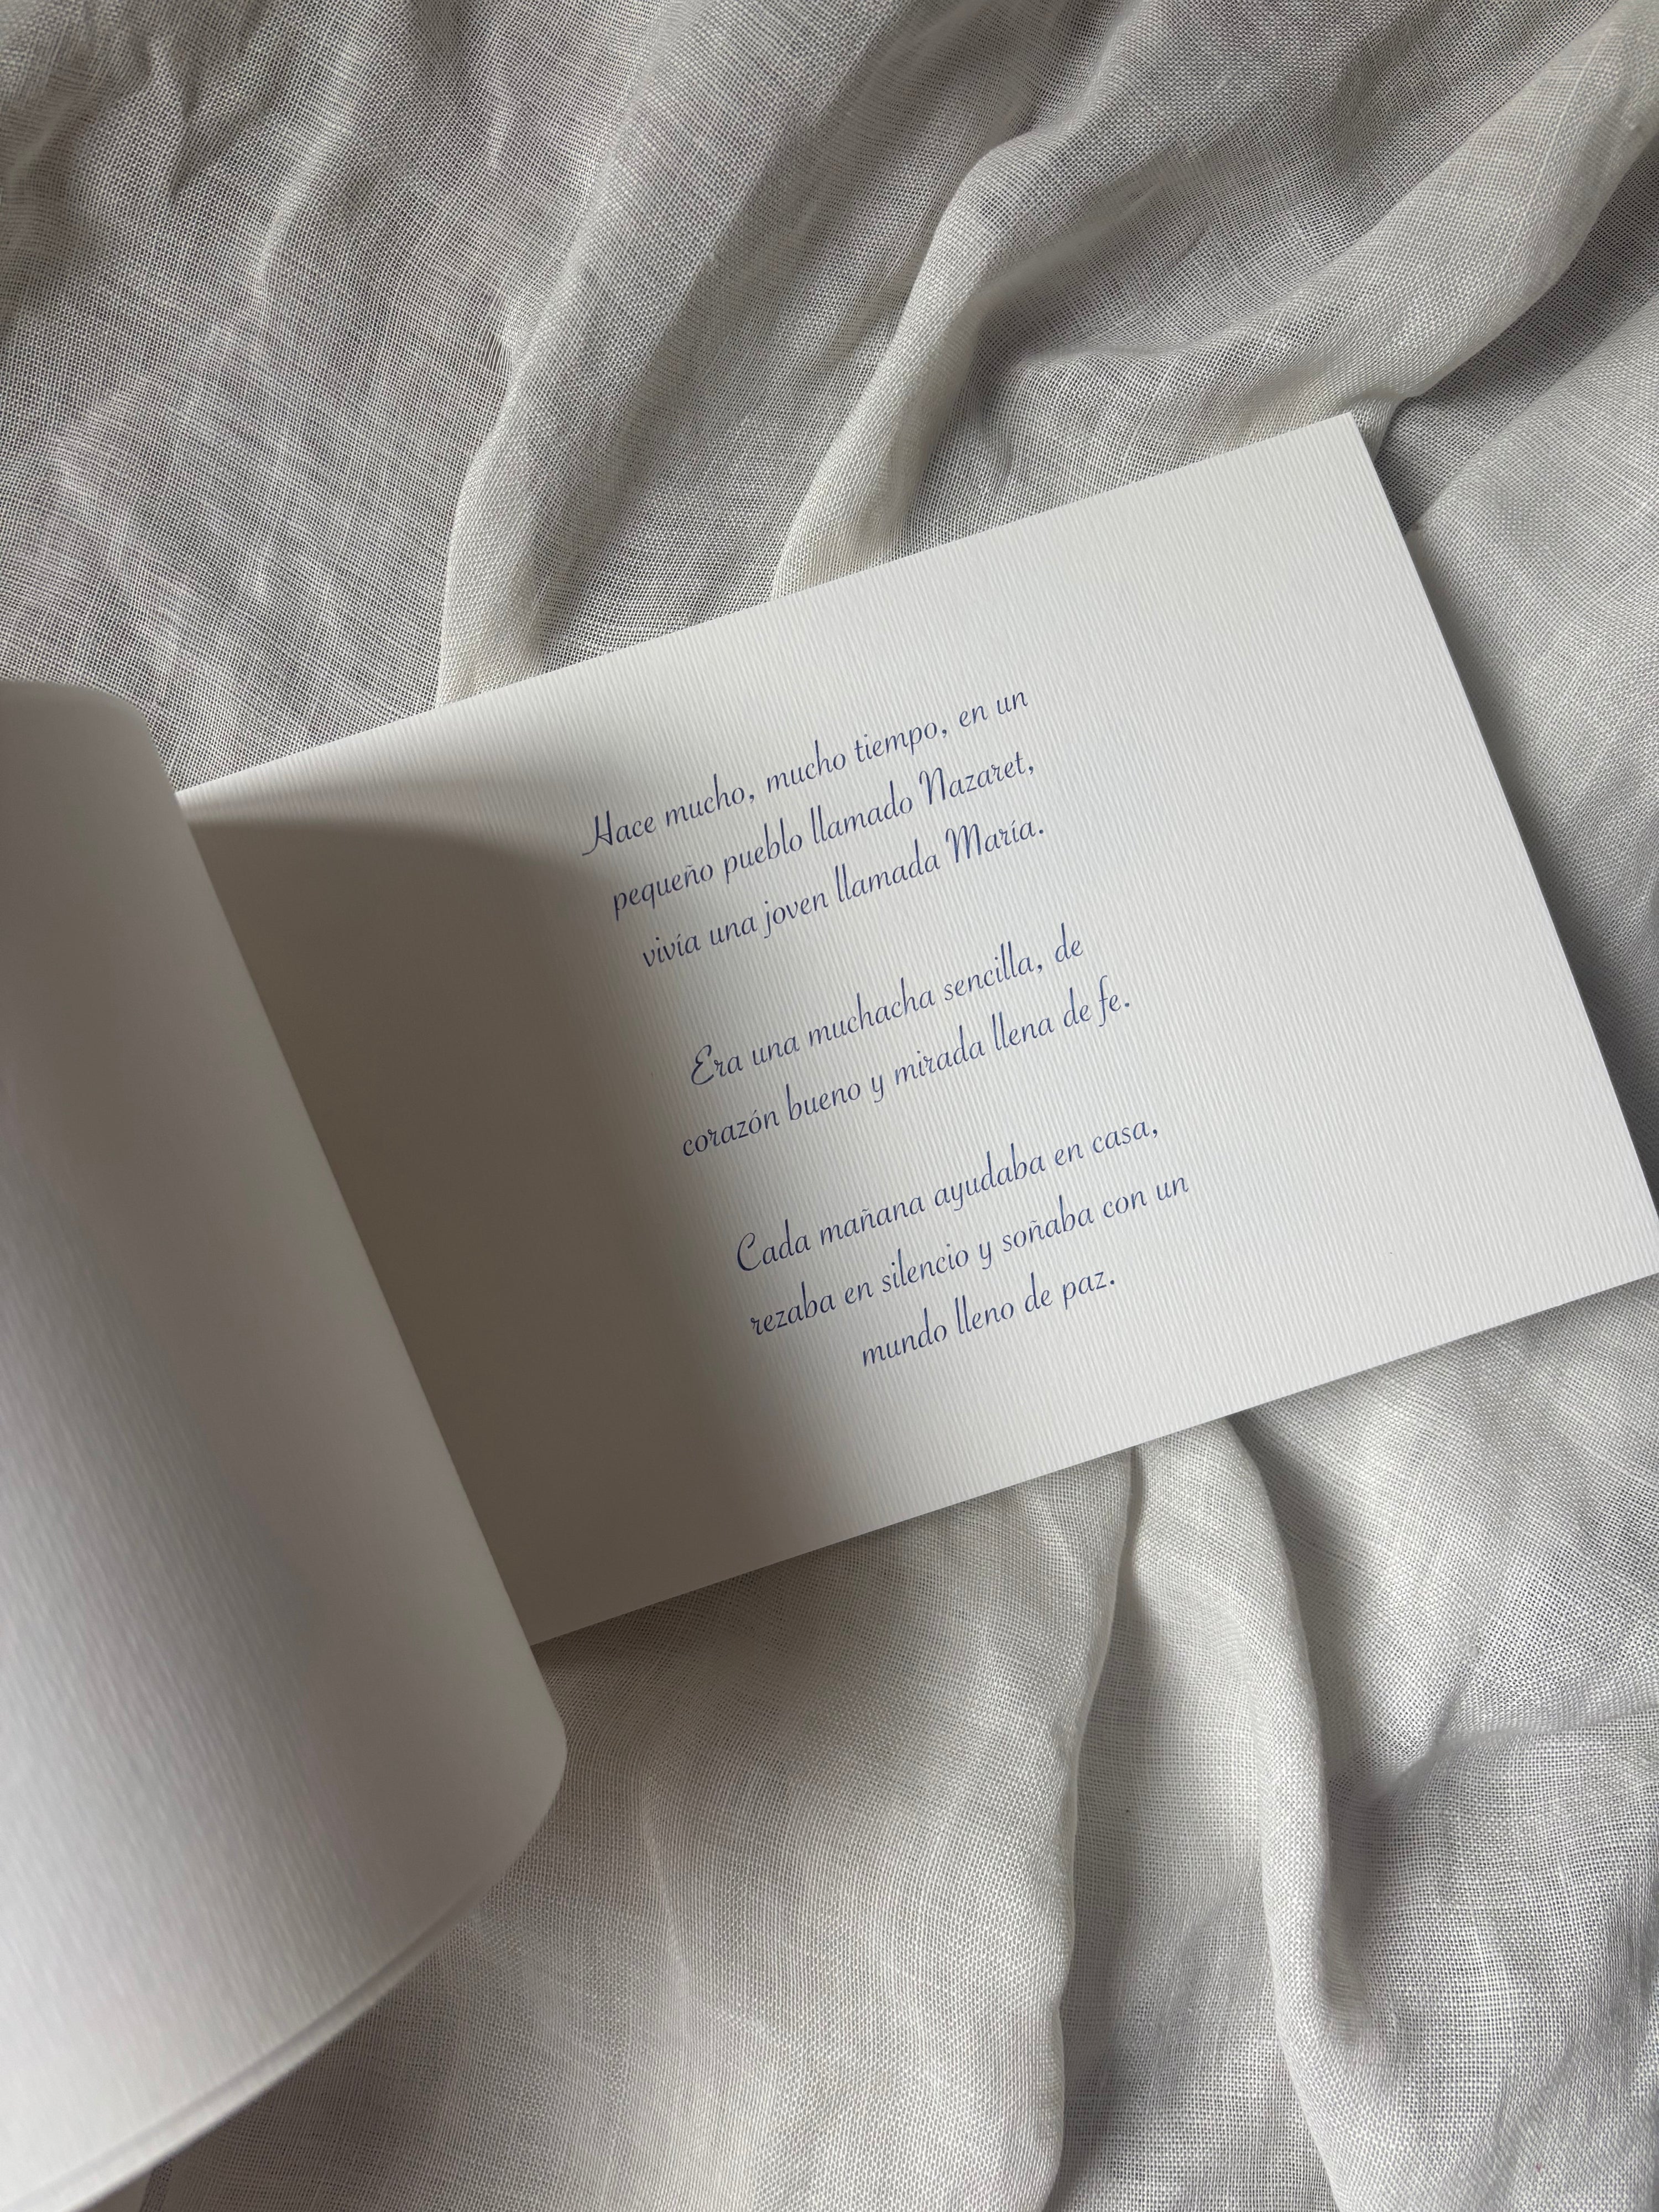 Hace mucho, mucho tiempo, en un
pequeño pueblo llamado Nazaret,
vivía una joven llamada María.
Era una muchacha sencilla, de
corazón bueno y mirada llena de fe.
Cada mañana ayudaba en casa,
rezaba en silencio y soñaba con un
mundo lleno de paz.